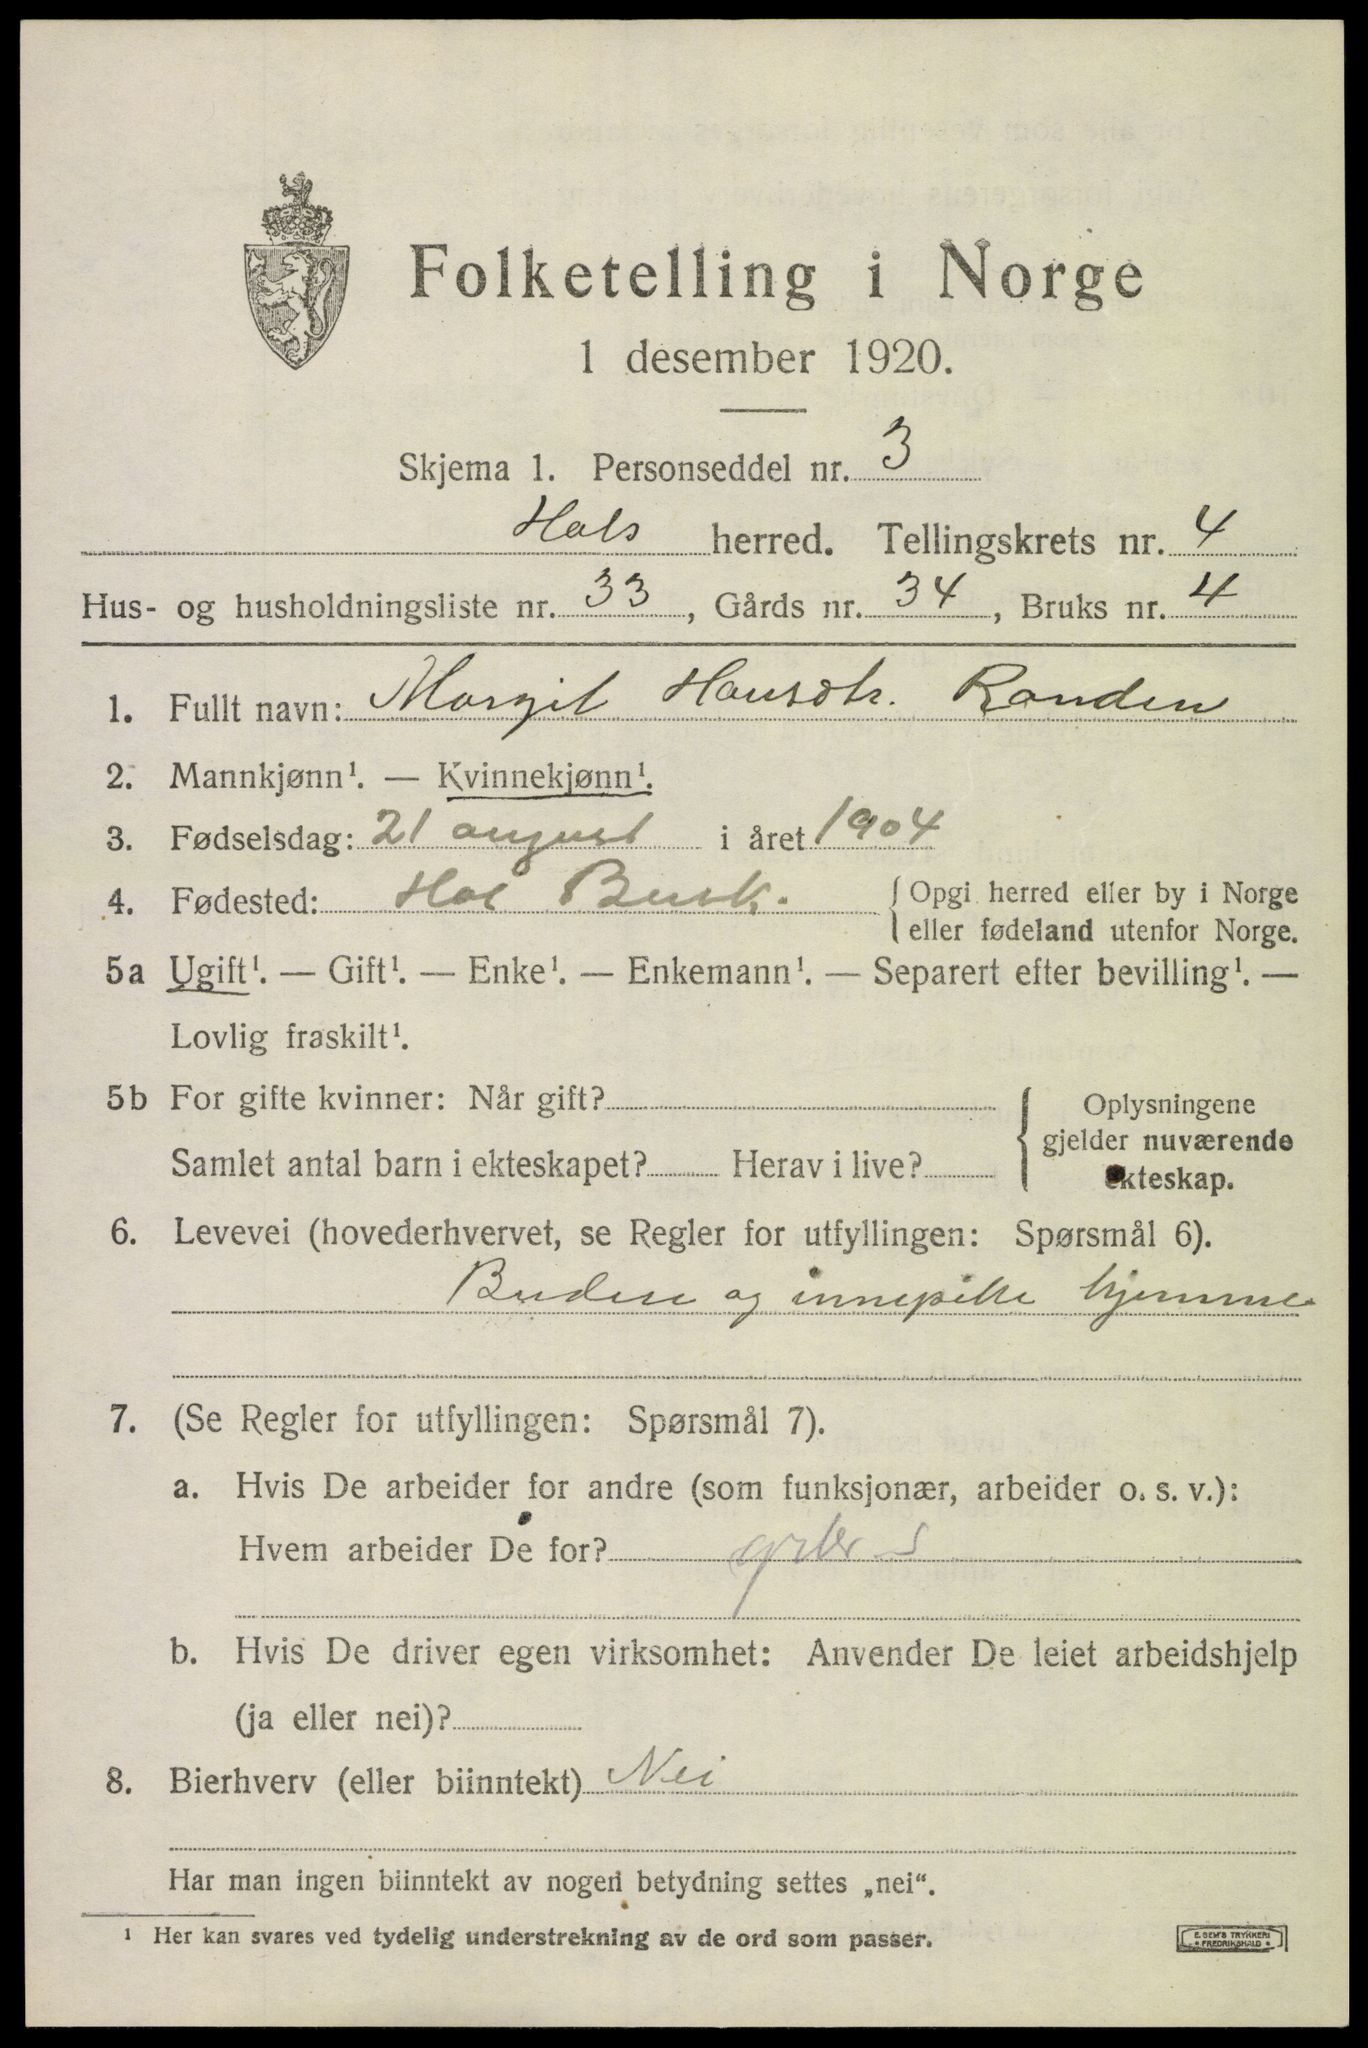 Folketelling i Norge
1 desember 1920.
Skjema 1. Personseddel nr. 3
Hols herred. Tellingskrets nr. 4
Hus- og husholdningsliste nr. 33, Gårds nr. 34, Bruks nr. 4
1. Fullt navn: Margit Hansdtr. Randen
2. Mannkjønn¹. — Kvinnekjønn¹.
3. Fødselsdag: 21 august i året 1904
4. Fødested: Hol Busk. { Opgi herred eller by i Norge
eller fødeland utenfor Norge.
5a Ugift¹. — Gift¹. — Enke¹. — Enkemann¹. — Separert efter bevilling¹. —
Lovlig fraskilt¹.
5b For gifte kvinner: Når gift? { Oplysningene
gjelder nuværende
Samlet antal barn i ekteskapet? Herav i live?
ekteskap.
6. Levevei (hovederhvervet, se Regler for utfyllingen: Spørsmål 6).
Budeie og innepike hjemme
7. (Se Regler for utfyllingen: Spørsmål 7).
a. Hvis De arbeider for andre (som funksjonær, arbeider o. s. v.):
Hvem arbeider De for?
b. Hvis De driver egen virksomhet: Anvender De leiet arbeidshjelp
(ja eller nei)?
8. Bierhverv (eller biinntekt) Nei
Har man ingen biinntekt av nogen betydning settes „nei“.
¹ Her kan svares ved tydelig understrekning av de ord som passer.
E. SEM'S TRYKKERI
FREDRIKSHALD